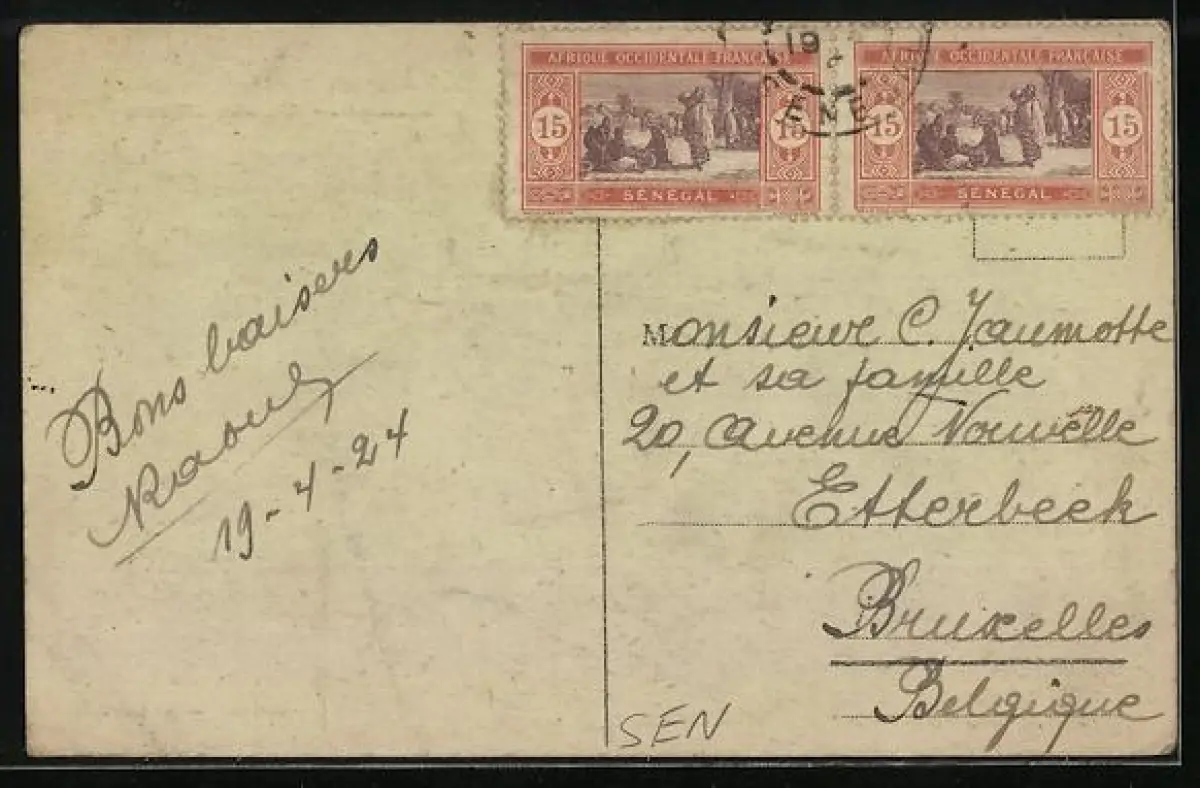 AFRIQUE OCCIDENTALE FRANÇAISE
15 15
SENEGAL
AFRIQUE OCCIDENTALE FRANÇAISE
15 15
SENEGAL
19
Bons baisers
Raoul
19-4-24
Monsieur C. Jaumotte
et sa famille
20, Avenue Nouvelle
Etterbeek
Bruxelles
Belgique
SEN